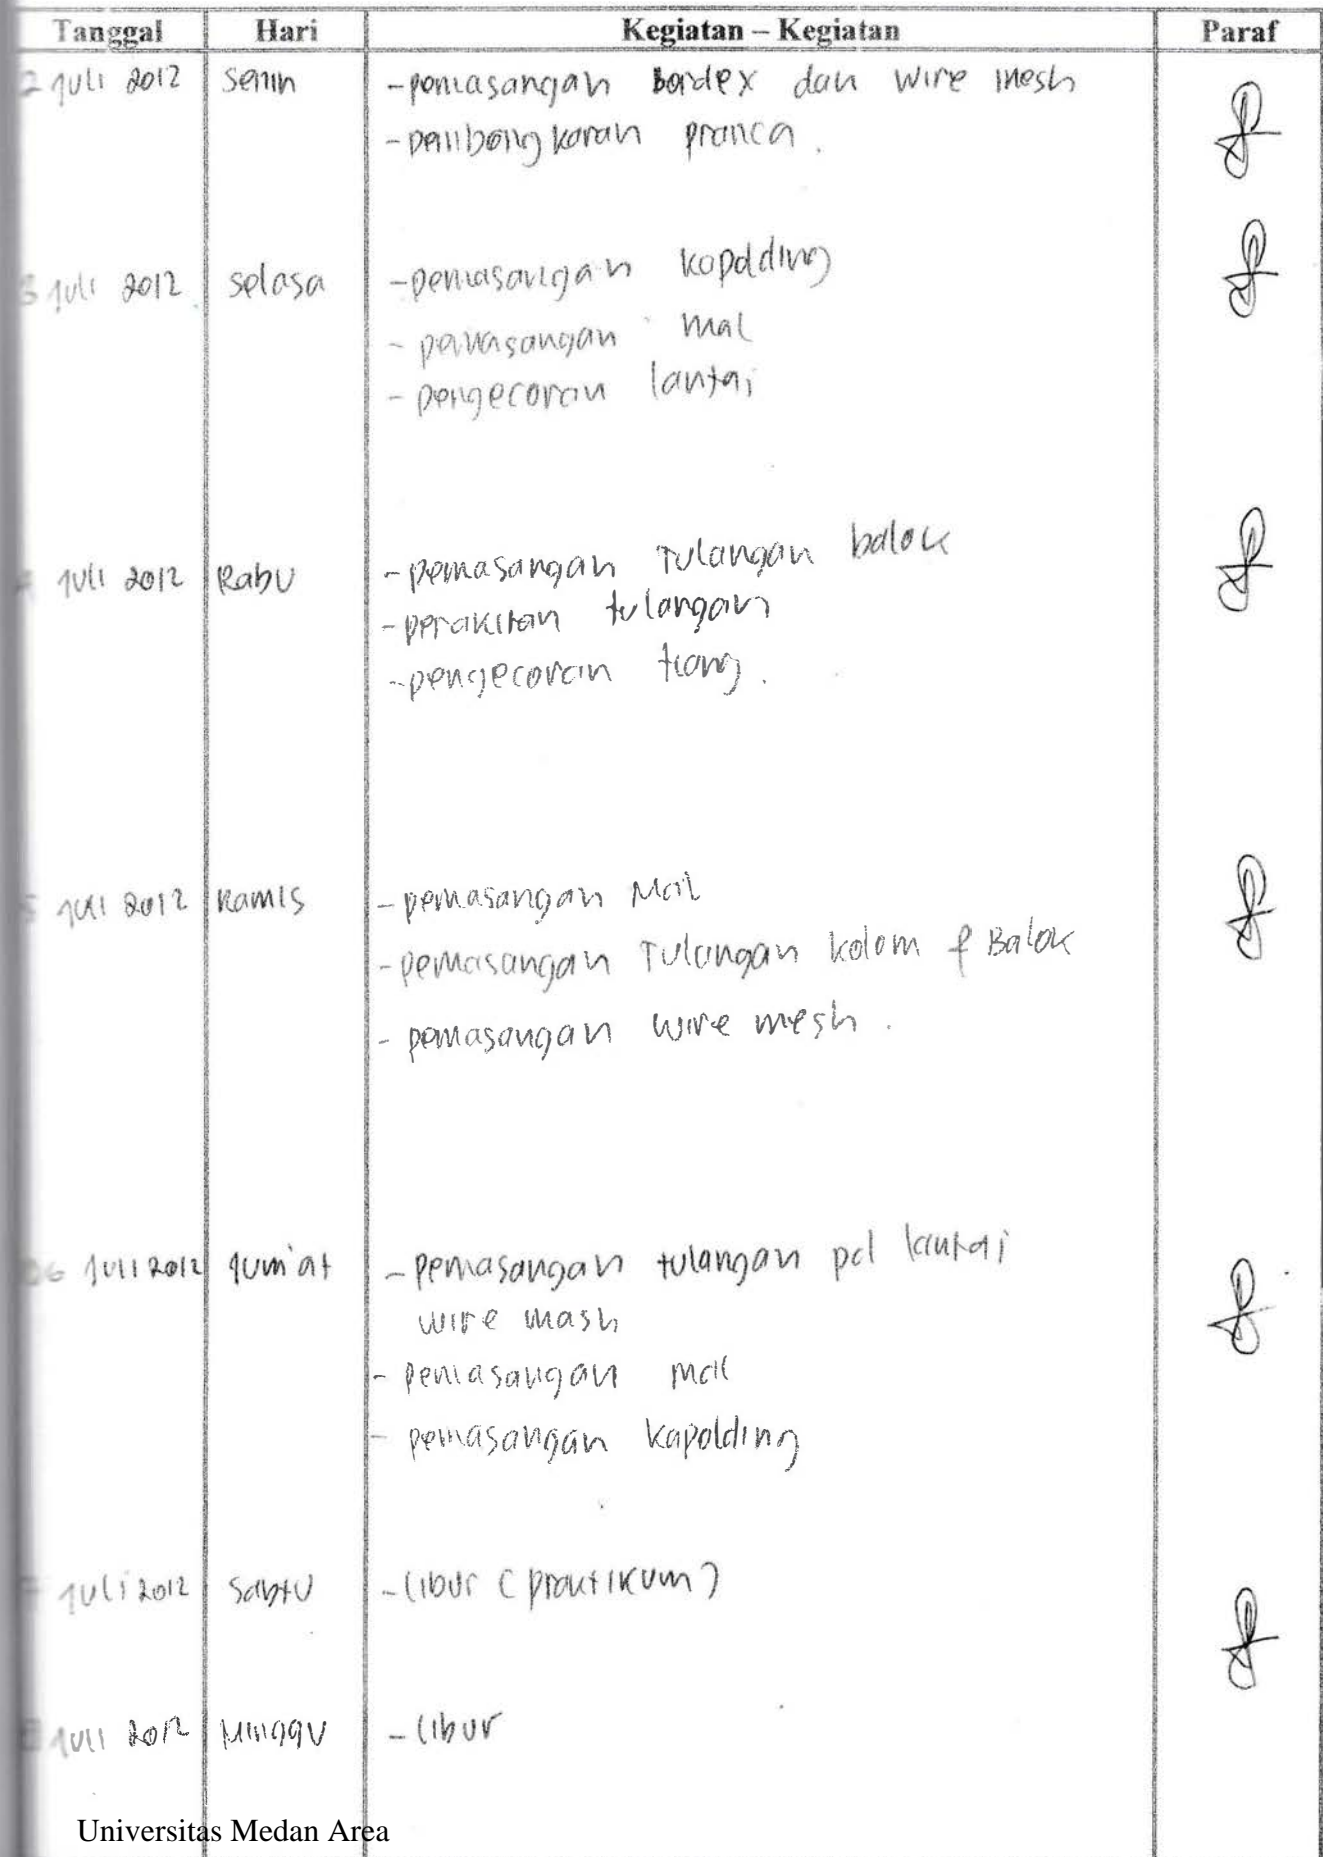 Tanggal Hari Kegiatan – Kegiatan Paraf
2 Juli 2012 Senin -pemasangan bordex dan wire mesh
-pembongkaran pranca.
3 Juli 2012 selasa -pemasangan kopolding
- pemasangan mal
- pengecoran lantai
Juli 2012 Rabu -pemasangan Tulangan balok
-perakitan tulangan
-pengecoran tiang.
5 Juli 2012 Kamis -pemasangan Mal
-pemasangan Tulangan kolom & Balok
- pemasangan wire mesh.
06 Juli 2012 Jum'at -pemasangan tulangan lantai
wire mash
- pemasangan mal
- pemasangan kapolding
Juli 2012 Sabtu -libur (praktikum)
Juli 2012 Minggu -libur
Universitas Medan Area